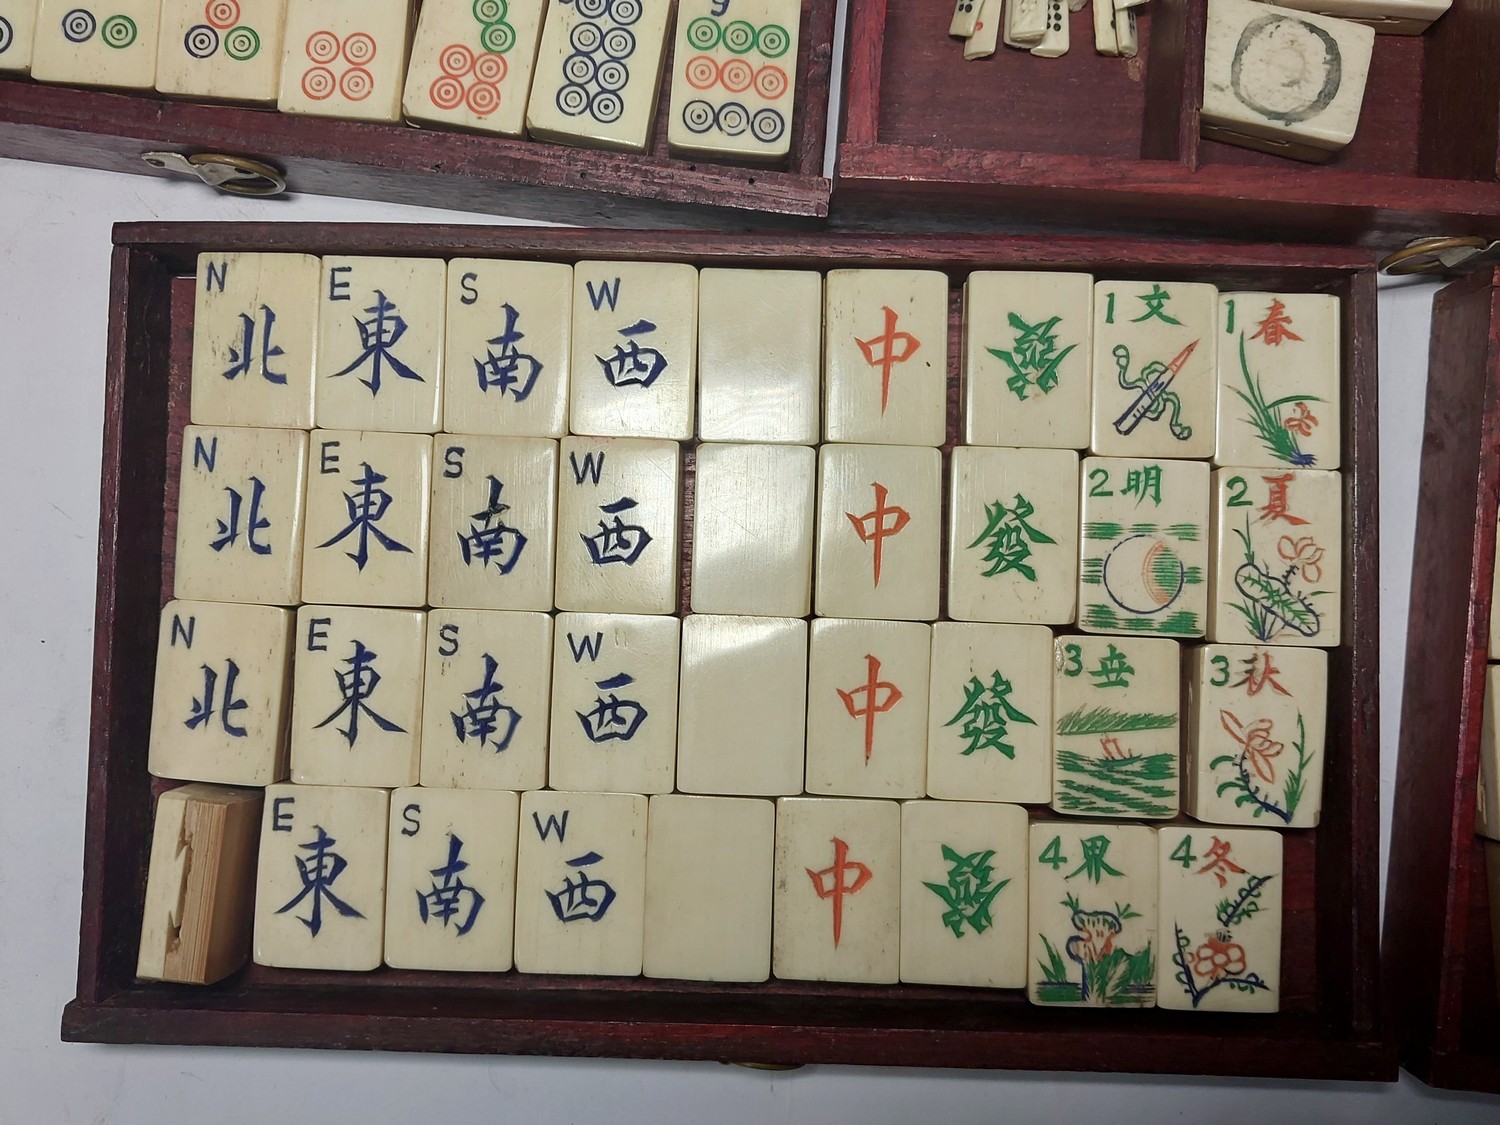 9
N 北 E 東 S 南 W 西 中 發 1 文 1 春
N 北 E 東 S 南 W 西 中 發 2 明 2 夏
N 北 E 東 S 南 W 西 中 發 3 世 3 秋
E 東 S 南 W 西 中 發 4 界 4 冬